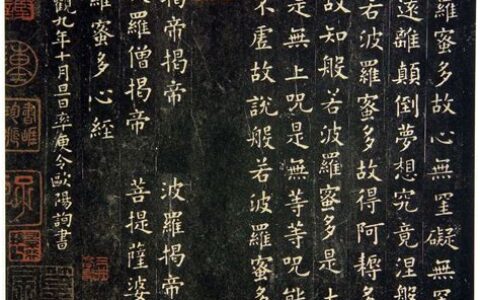 羅蜜多故心無罣礙無
遠離顛倒夢想究竟涅槃
若波羅蜜多故得阿耨多
故知般若波羅蜜多是大
是無上咒是無等等咒能
不虛故說般若波羅蜜多
揭帝揭帝 波羅揭帝
羅僧揭帝 菩提薩婆
羅蜜多心經
觀九年十月旦日率更令歐陽詢書